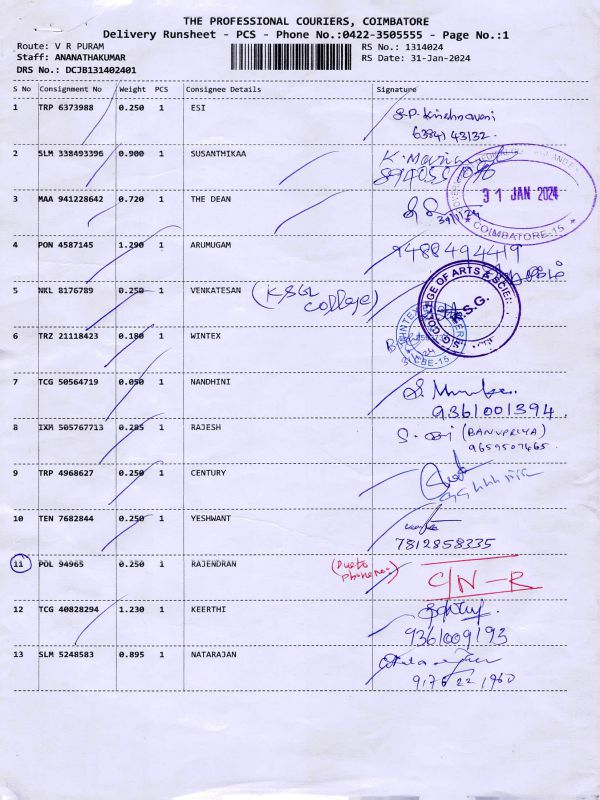 THE PROFESSIONAL COURIERS, COIMBATORE
Delivery Runsheet - PCS - Phone No.:0422-3505555 - Page No.:1
Route: V R PURAM RS No.: 1314024
Staff: ANANATHAKUMAR RS Date: 31-Jan-2024
DRS No.: DCJB131402401
S No Consignment No Weight PCS Consignee Details Signature
1 TRP 6373988 0.250 1 ESI
63841 43132.
2 SLM 338493396 0.900 1 SUSANTHIKAA
3 MAA 941228642 0.720 1 THE DEAN
31 JAN 2024
COIMBATORE-15
4 PON 4587145 1.290 1 ARUMUGAM 9488494419
5 NKL 8176789 0.250 1 VENKATESAN (KSG College)
COLLEGE OF ARTS & SCIEN
K.S.G.
6 TRZ 21118423 0.180 1 WINTEX
WINTEX
CBE-15
7 TCG 50564719 0.050 1 NANDHINI
9361001394.
8 IXM 505767713 0.285 1 RAJESH (BANUPRIYA)
9659507465.
9 TRP 4968627 0.250 1 CENTURY
10 TEN 7682844 0.250 1 YESHWANT
7812858335
11 POL 94965 0.250 1 RAJENDRAN C/N-R
12 TCG 40828294 1.230 1 KEERTHI
9361009193
13 SLM 5248583 0.895 1 NATARAJAN
9176221960